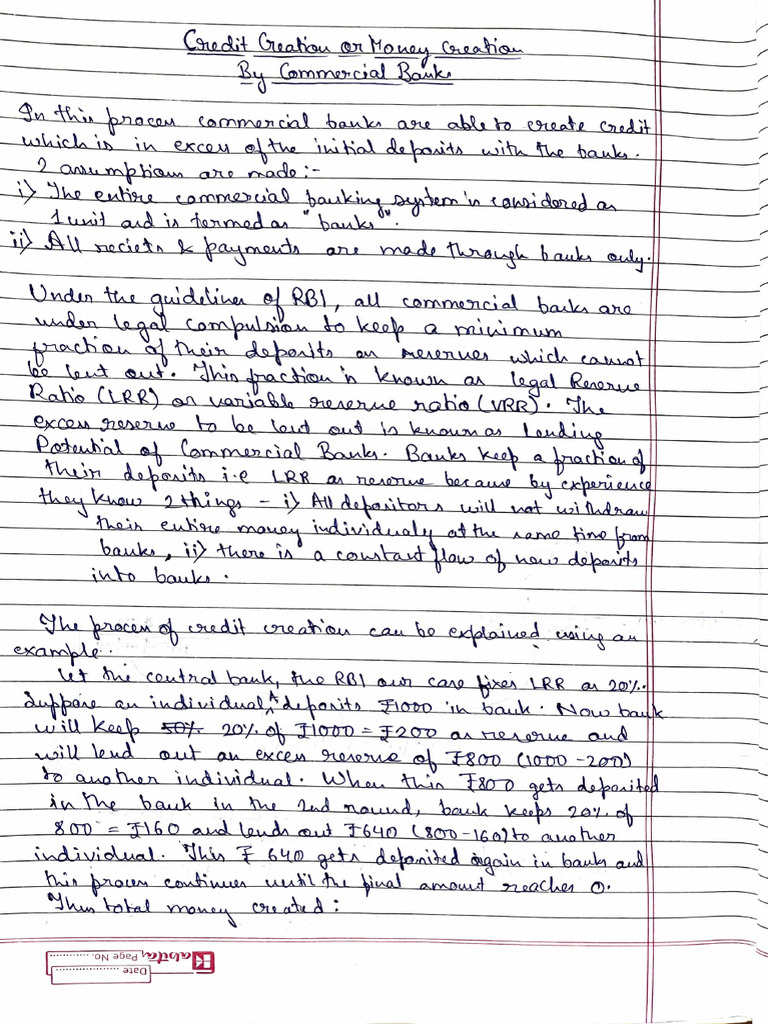 Credit Creation or Money Creation
By Commercial Banks
In this process commercial banks are able to create credit
which is in excess of the initial deposits with the banks.
2 assumptions are made :-
i) The entire commercial banking system is considered as
1 unit and is termed as "banks".
ii) All reciets & payments are made through banks only.
Under the guidelines of RBI, all commercial banks are
under legal compulsion to keep a minimum
fraction of their deposits as reserves which cannot
be lent out. This fraction is known as legal Reserve
Ratio (LRR) or variable reserve ratio (VRR). The
excess reserve to be lent out is known as Lending
Potential of Commercial Banks. Banks keep a fraction of
their deposits i.e LRR as reserve because by experience
they know 2 things - i) All depositors will not withdraw
their entire money individualy at the same time from
banks, ii) there is a constant flow of new deposits
into banks.
The process of credit creation can be explained using an
example.
Let the central bank, the RBI our case fixes LRR as 20%.
Suppose an individual A deposits ₹1000 in bank. Now bank
will keep 50% 20% of ₹1000 = ₹200 as reserve and
will lend out an excess reserve of ₹800 (1000 - 200)
to another individual. When this ₹800 gets deposited
in the bank in the 2nd round, bank keeps 20% of
800 = ₹160 and lends out ₹640 (800-160) to another
individual. This ₹ 640 gets deposited again in banks and
this process continues until the final amount reaches 0.
Thus total money created :
Page No.
Date